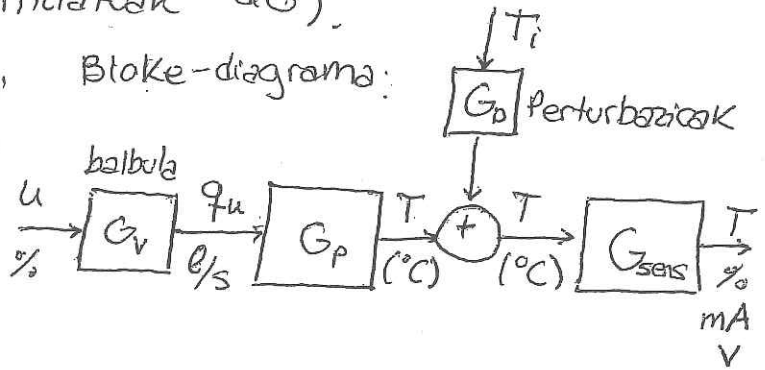 Bloke-diagrama:
Ti
GD Perturbazioak
balbula
u
%
Gv
qu
l/s
Gp
T
(°C)
+
T
(°C)
Gsens
T
%
mA
V